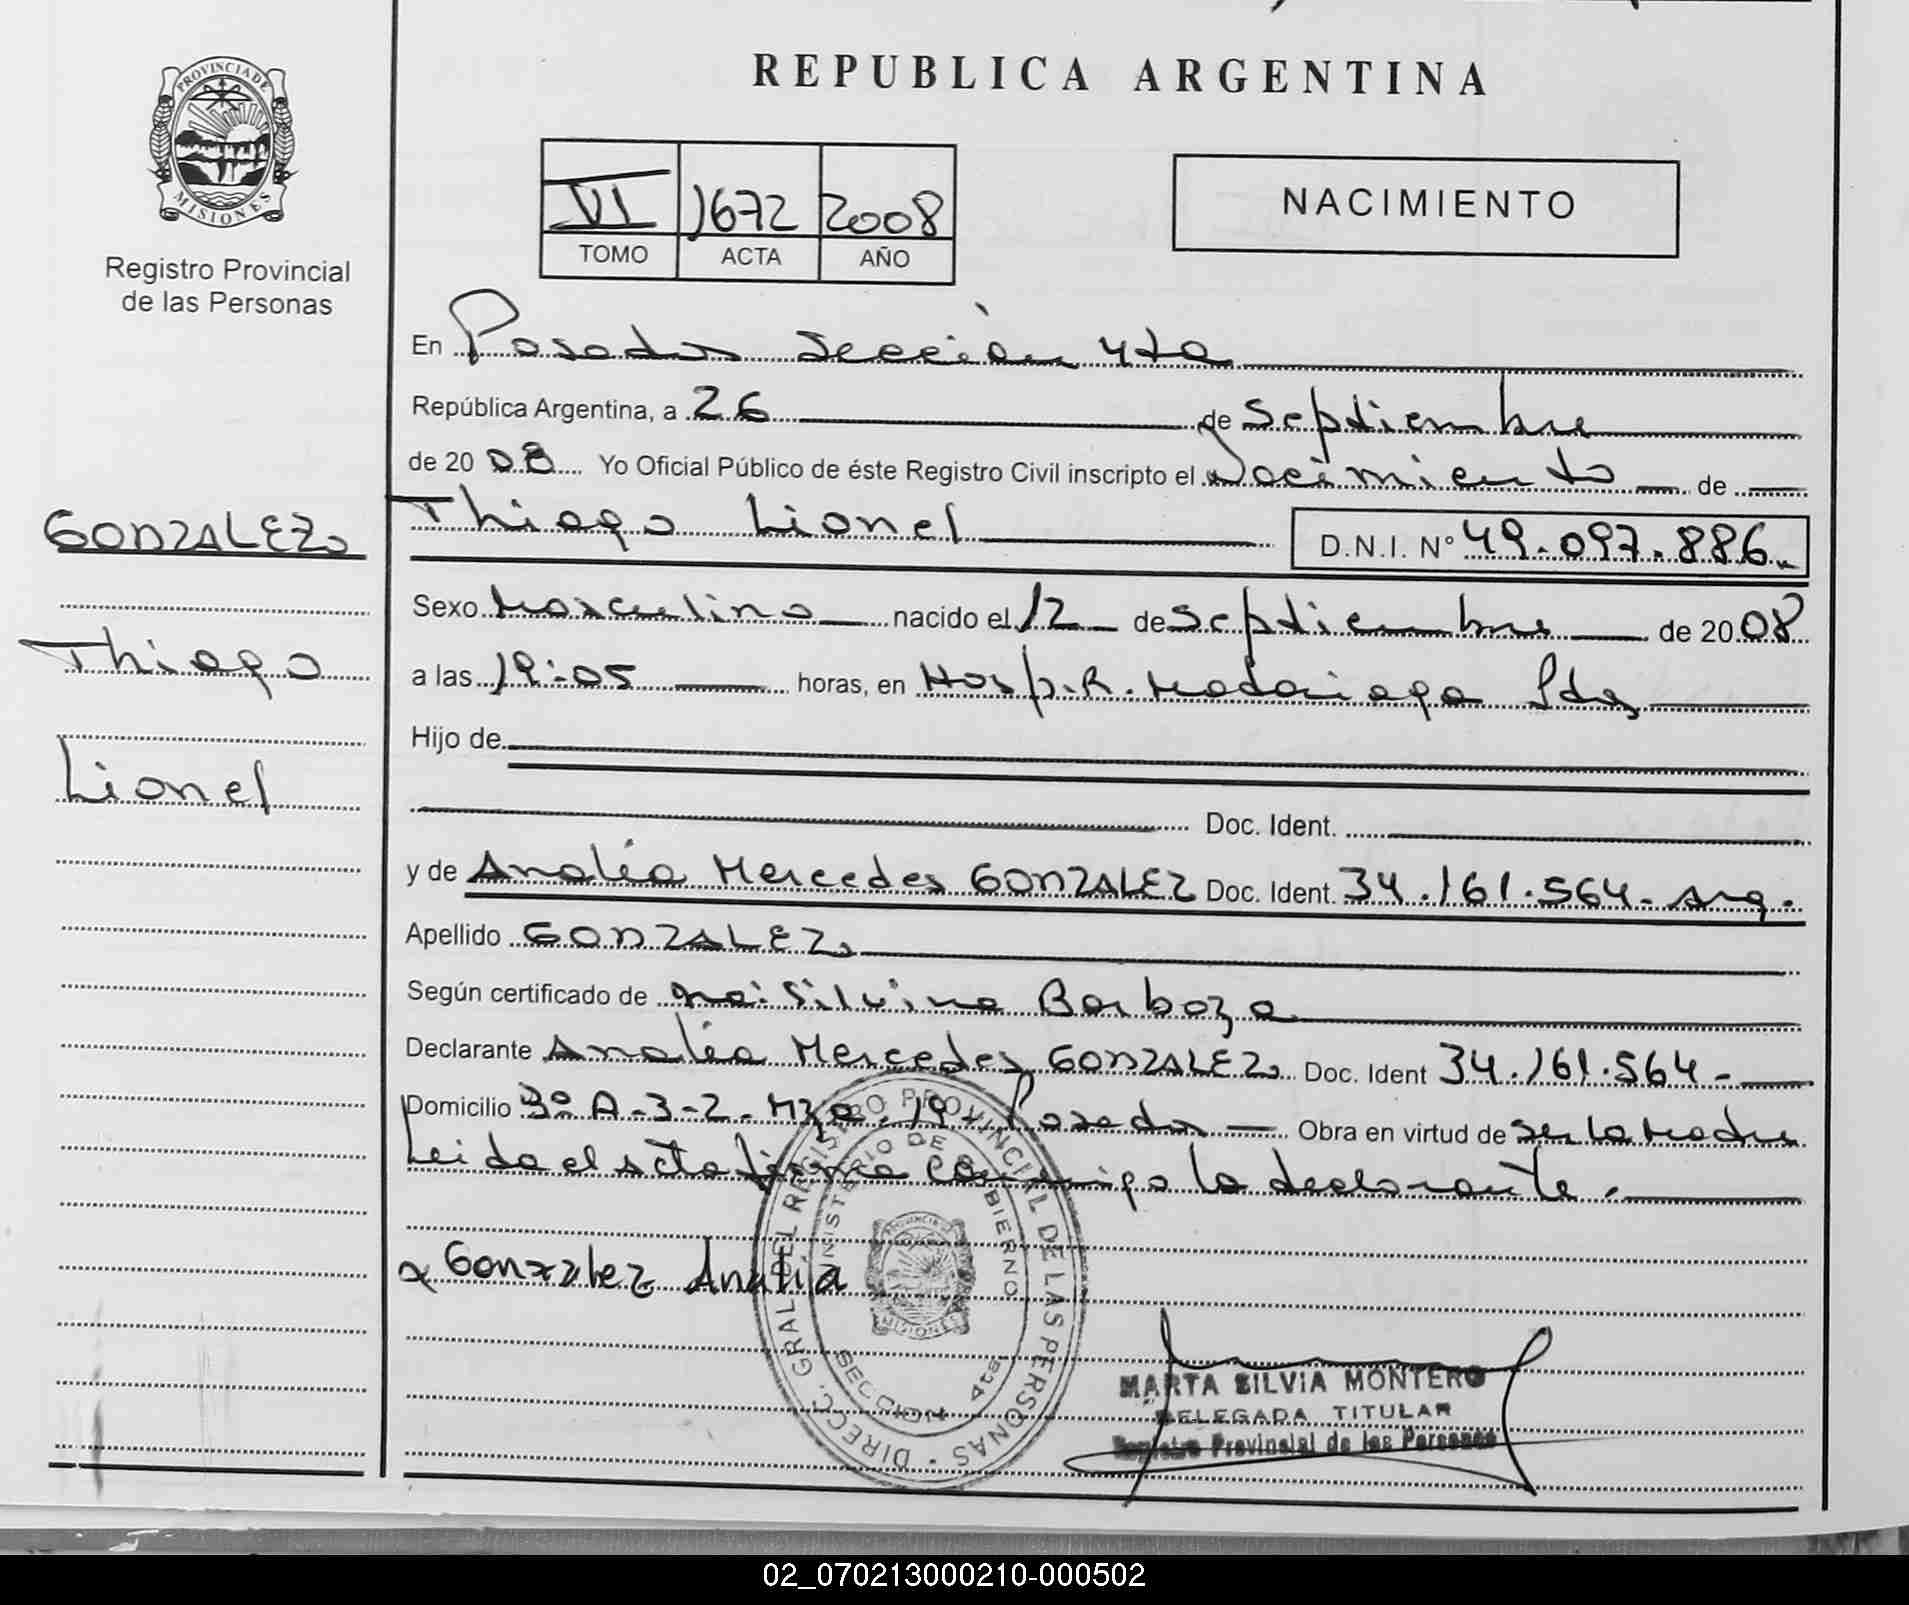 PROVINCIA DE
MISIONES
Registro Provincial
de las Personas
GONZALEZ
Thiago
Lionel
REPUBLICA ARGENTINA
VI 1672 2008
TOMO ACTA AÑO
NACIMIENTO
En Posadas Sección 4ta
República Argentina, a 26 de Septiembre
de 20 08 Yo Oficial Público de éste Registro Civil inscripto el Nacimiento de
Thiago Lionel D.N.I. N° 49.097.886
Sexo Masculino nacido el 12 de Septiembre de 20 08
a las 19:05 horas, en Hosp. R. Madariaga Pdas
Hijo de
Doc. Ident.
y de Analía Mercedes GONZALEZ Doc. Ident. 34.161.564- Arg.
Apellido GONZALEZ
Según certificado de Silvina Barboza
Declarante Analía Mercedes GONZALEZ Doc. Ident 34.161.564-
Domicilio 3º A-3-2- Mza. 19- Posadas Obra en virtud de ser la madre
Leida el acta firma conmigo la declarante.
x Gonzalez Analía
DIRECC. GRAL. DEL REGISTRO PROVINCIAL DE LAS PERSONAS
MINISTERIO DE GOBIERNO
PROVINCIA DE
MISIONES
SECCION 4ta.
MARTA SILVIA MONTERO
DELEGADA TITULAR
Registro Provincial de las Personas
02_070213000210-000502